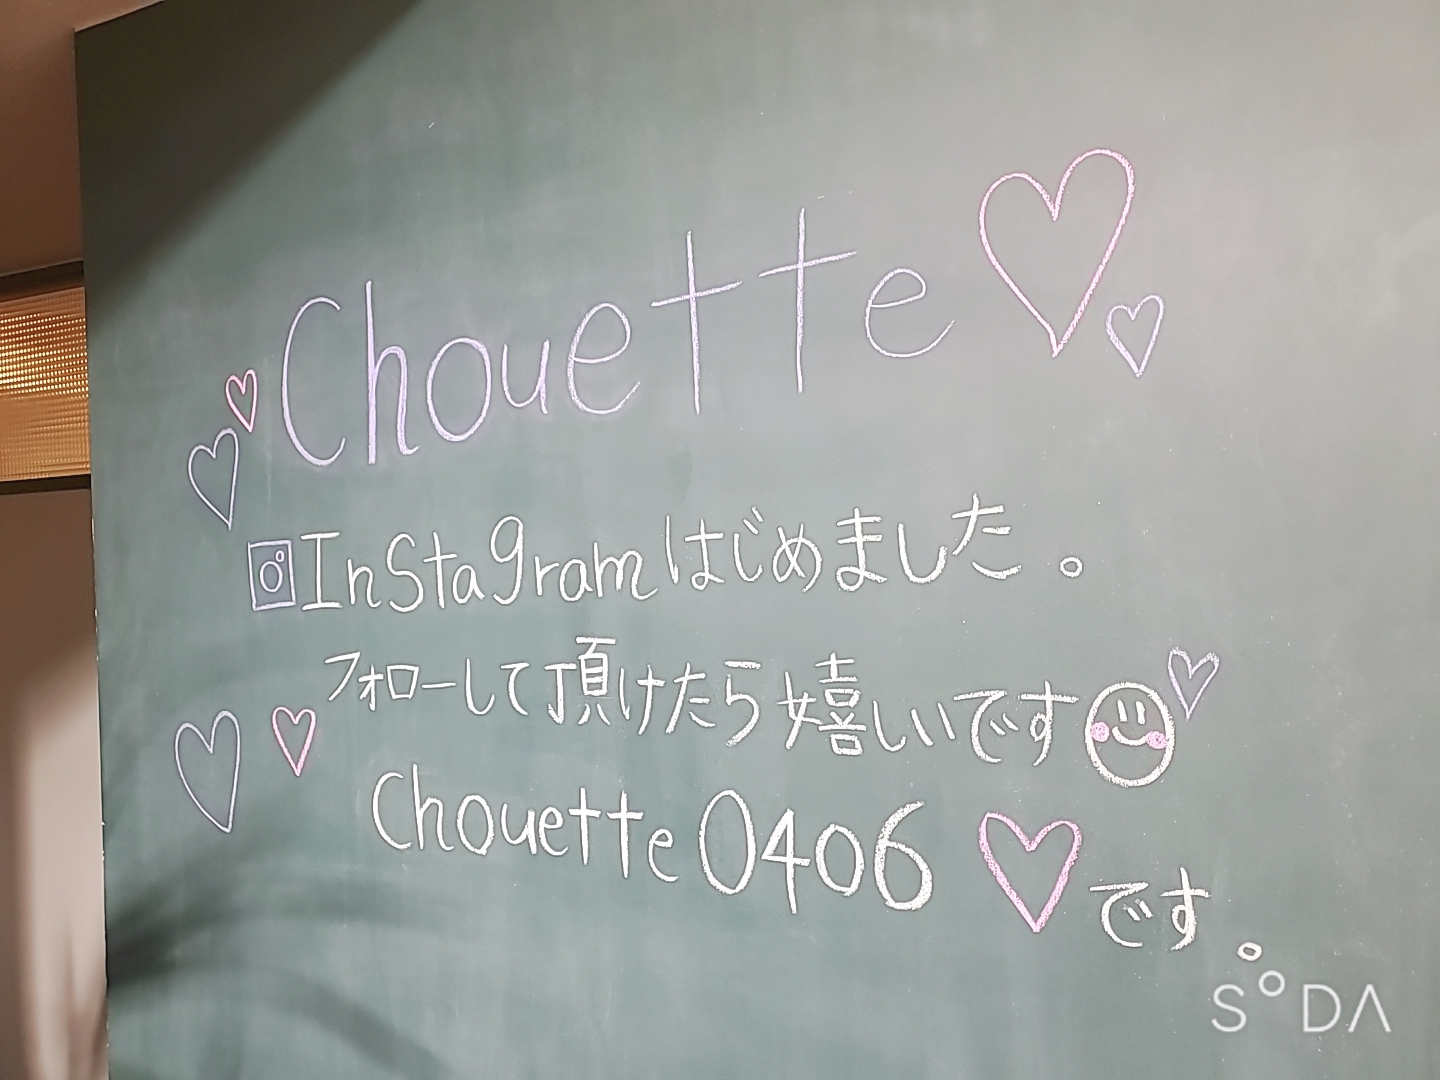 Chouette
Instagramはじめました。
フォローして頂けたら嬉しいです
Chouette0406
です。
SODA